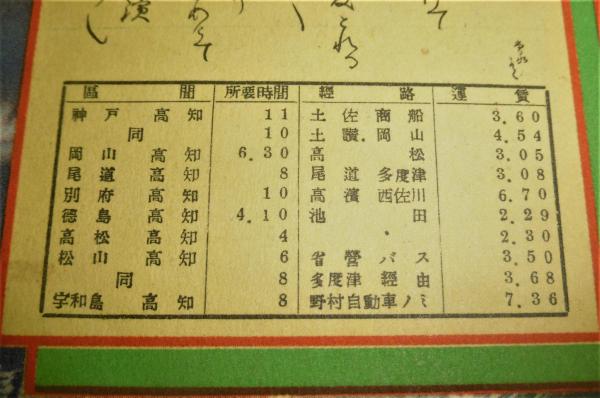 區間 所要時間 經路 運賃
神戸高知 11 土佐商船 3.60
同 10 土讃.岡山 4.54
岡山高知 6.30 高松 3.05
尾道高知 8 尾道多度津 3.08
別府高知 10 高濱西佐川 6.70
徳島高知 4.10 池田 2.29
高松高知 4 . 2.30
松山高知 6 省營バス 3.50
同 8 多度津經由 3.68
宇和島高知 8 野村自動車ノミ 7.36